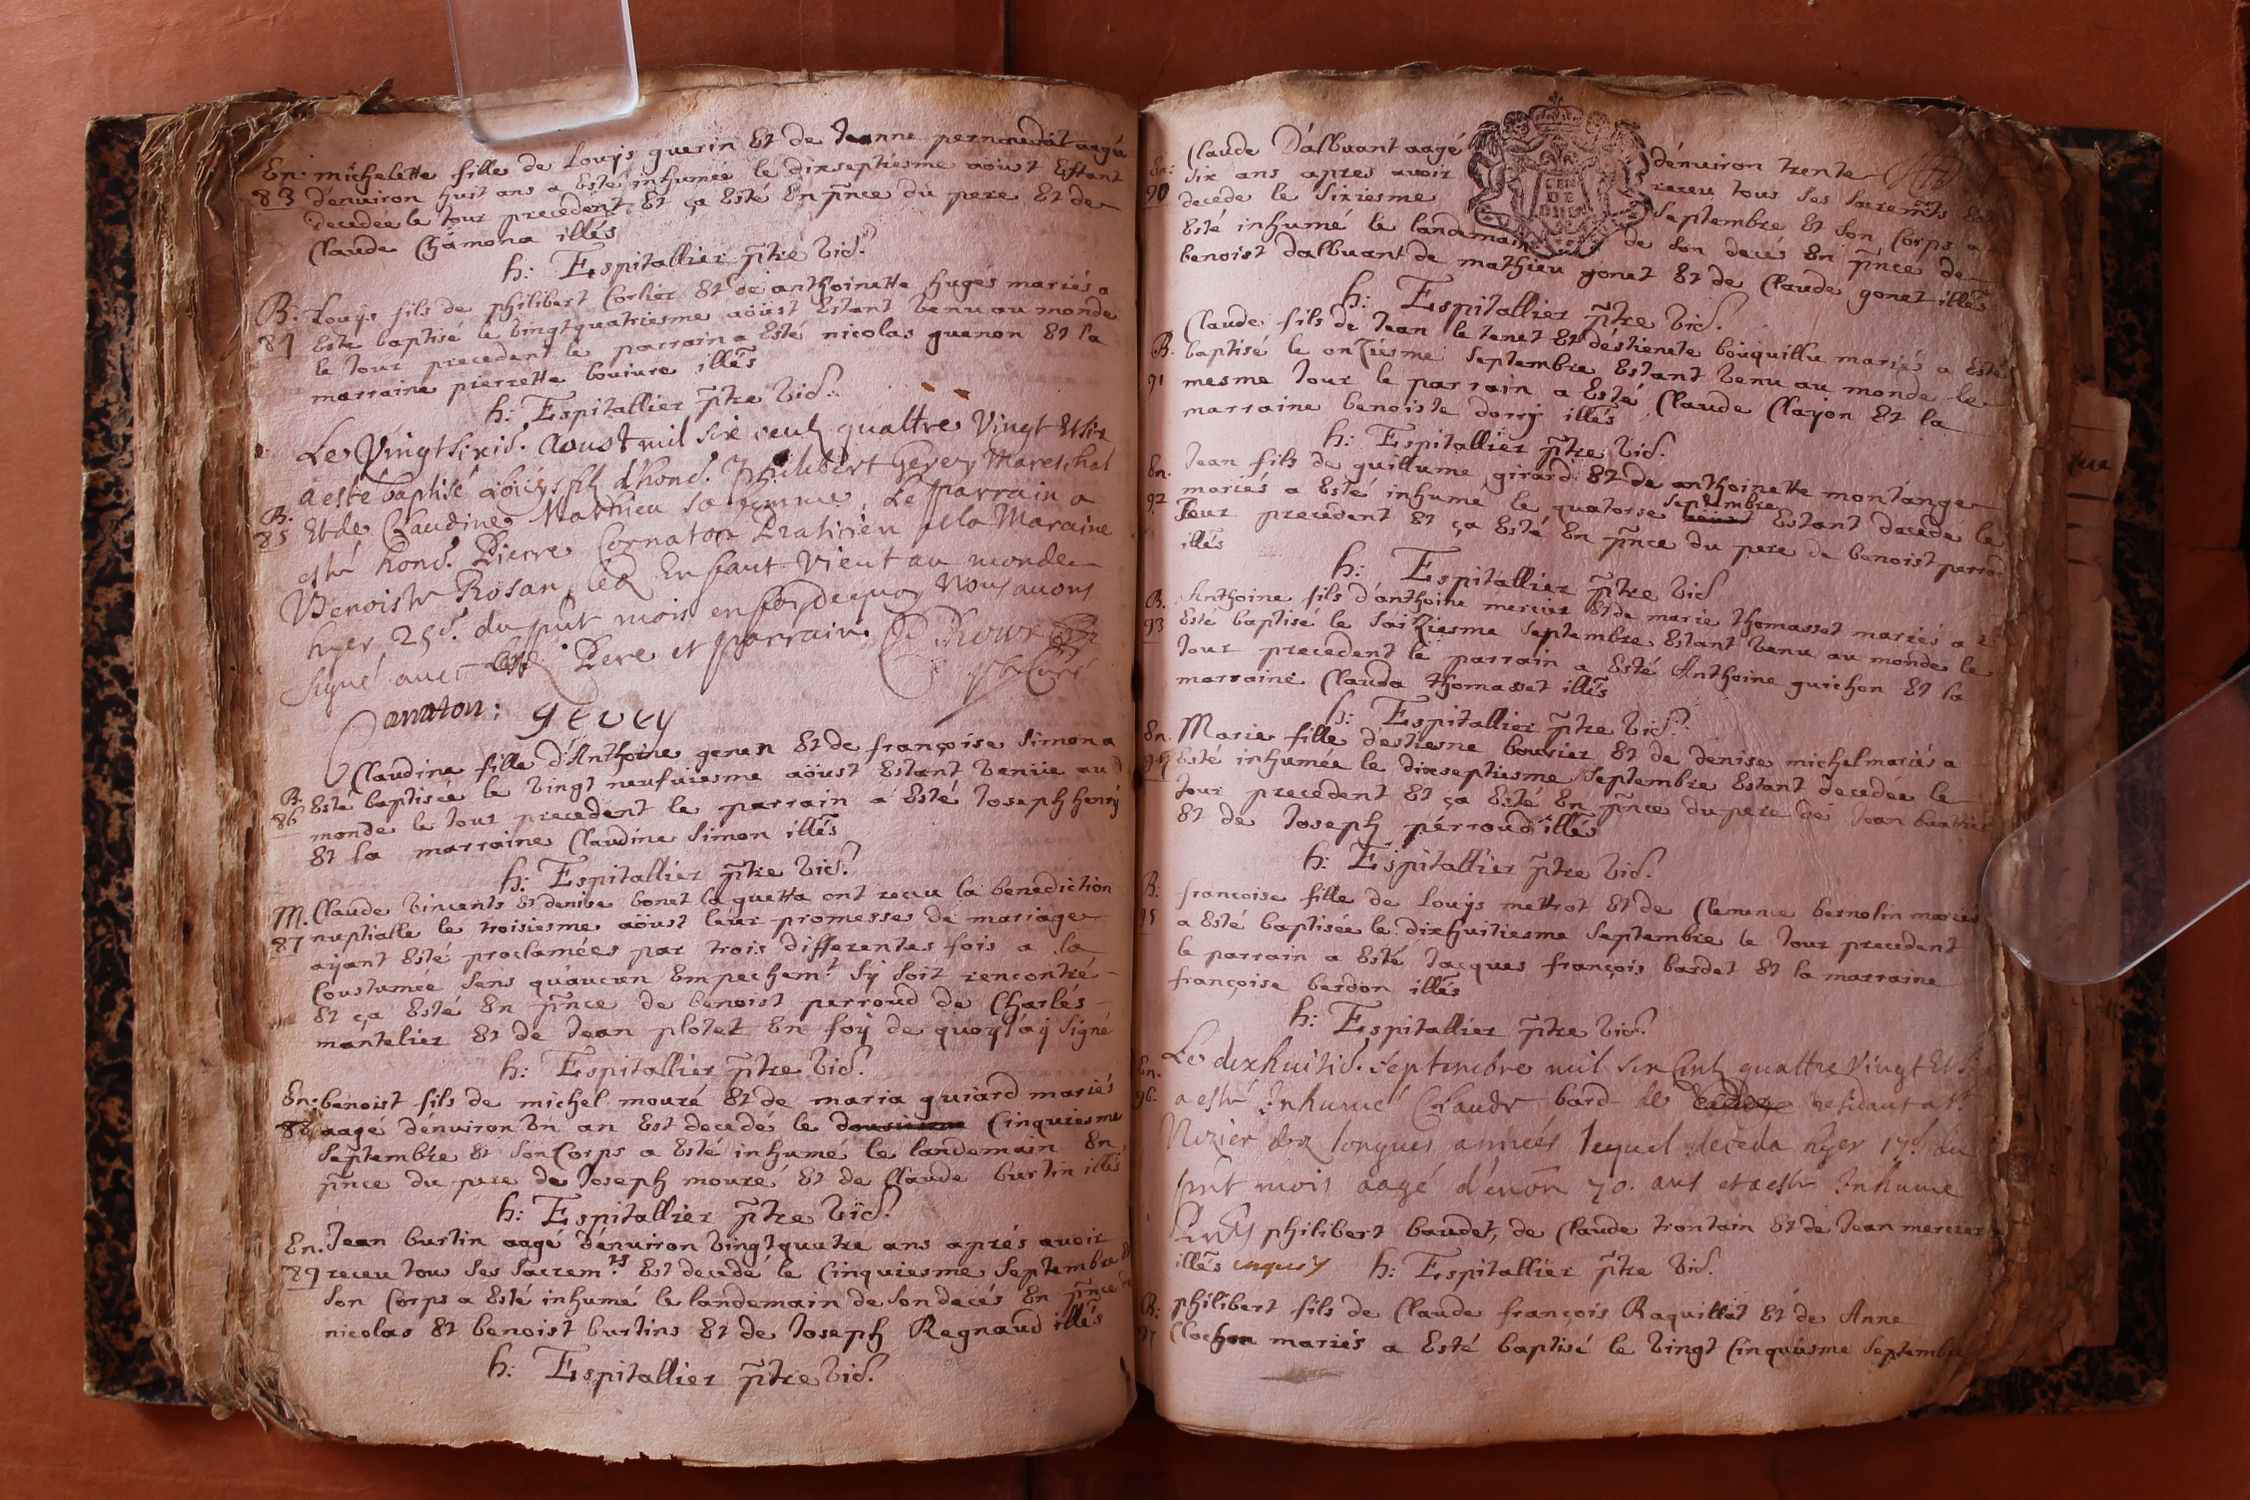 En. michelette fille de Louÿs guerin Et de Jeanne pernoudat aagée
83 dénuiron huit ans a Esté inhumée le dixseptiesme aoust Estant
decedée le Jour precedent Et ça Esté En pñce du pere Et de
Claude Chamona illés
h: Espitallier pñtre vic.
B: Louÿs fils de philibert Corlier Et de anthoinette hugés mariés a
84 Este baptisé le vingtquatriesme aöust Estant venu au monde
le Jour precedent le parrain a Esté nicolas guenon Et la
marraine pierrette bouiure illés
h: Espitallier pñtre vic.
Le Vingt sixie. Aoust mil six cents quattre Vingt Et six
a esté baptisé Loüys fils d'hono. Philibert Gevey Mareschal
B. Et de Claudine Mathieu sa femme, Le parrain a
85 esté hono. Pierre Cornaton Praticien Et la Maraine
Benoiste Rosan, led. Enfant Vient au monde
hyer 25e. du pñt mois en foy de quoy Nous avons
signé avec lesd. Pere et parrain.
Cornaton: gevey
Curé
Claudine fille d'Anthoine genen Et de françoise Simon a
B. Esté baptisée le vingt neufuiesme aöust Estant venüe au
86 monde le Jour precedent le parrain a Esté Joseph henrÿ
Et la marraine Claudine Simon illés
h: Espitallier pñtre vic.
M. Claude vincents Et denise bonet laquetta ont receu la benediction
87 nuptialle le troisiesme aöust leur promesses de mariage
aÿant Esté proclamées par trois differentes fois a la
Coustumée Sans qu'aucun Empechemt. Sÿ soit rencontré
Et ça Esté En pñce de benoist perroud de Charlés
mantelier Et de Jean plotet En foÿ de quoy J'aÿ Signé
h: Espitallier pñtre vic.
En. benoist fils de michel mouré Et de maria guiard mariés
88 aagé denuiron vn an Est decedé le Cinquiesme
Septembre Et Son Corps a Esté inhumé le landemain En
pñce du pere de Joseph mouré Et de Claude burtin illés
h: Espitallier pñtre vic.
En. Jean burtin aagé dénuiron vingtquatre ans aprés auoir
89 receu tous Ses Sacremts. Est decedé le Cinquiesme Septembre Et
Son Corps a Esté inhumé le landemain de Son decés En pñce de
nicolas Et benoist burtins Et de Joseph Regnaud illés
h: Espitallier pñtre vic.
En: Claude Dalbuant aagé dénuiron trente
90 Six ans apres auoir receu tous Ses Sacremts Est
decede le Sixiesme Septembre Et Son Corps a
Esté inhumé le landemain de Son decés En pñce de
benoist dalbuant de mathieu gonet Et de Claude gonet illés
h: Espitallier pñtre vic.
Claude fils de Jean le tenet Et destienete bouquillu mariés a Esté
B. baptisé le onziesme Septembre Estant venu au monde le
91 mesme Jour le parrain a Esté Claude Clayon Et la
marraine benoiste dorrÿ illés
h: Espitallier pñtre vic.
En. Jean fils de guillume girard Et de anthoinette montange
92 mariés a Esté inhumé le quatorse Septembre Estant decede le
Jour precedent Et ça Esté En pñce du pere de benoist perrod
illés
h: Espitallier pñtre vic
B. Anthoine fils d'anthoine mercier Et de marie thomasset mariés a
93 Esté baptisé le Saiziesme Septembre Estant venu au monde le
Jour precedent le parrain a Esté Anthoine guichon Et la
marraine Clauda thomasset illés
h: Espitallier pñtre vic.
En. Marie fille destiesne bouvier Et de denise michel mariés a
94 Esté inhumée le dixseptiesme Septembre Estant decedée le
Jour precedent Et ça Esté En pñce du pere de Jean
Et de Joseph pérroud illés
h: Espitallier pñtre vic.
B: francoise fille de Louÿs mettrot Et de Clemence bernolin mariés
95 a Esté baptisée le dixhuitiesme Septembre le Jour precedent
le parrain a Esté Jacques françois bardet Et la marraine
françoise berdon illés
h: Espitallier pñtre vic.
Le dixhuitie. Septembre mil six cents quattre Vingt Et
En. a esté Inhumé Claude bard de residant a St
96. Nizier dez longues années lequel deceda hyer 17e. du
pñt mois aagé d'enon 70. ans et a esté Inhumé
philibert baudet, de Claude trontain Et de Jean mercier
illés enquis h: Espitallier pñtre vic.
B: philibert fils de Claude françois Raquillet Et de Anne
97 Clochon mariés a Esté baptisé le vingt Cinquiesme Septembre